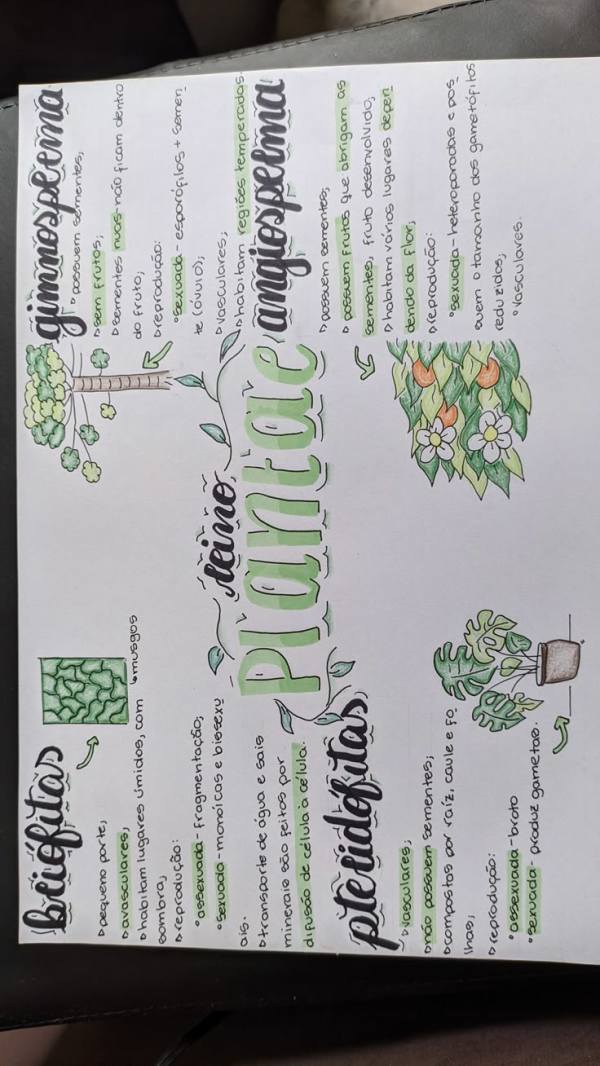 reino
Plantae
briófitas
▹pequeno porte;
▹avasculares;
▹habitam lugares úmidos, com
sombra;
musgos
▹reprodução:
°assexuada-fragmentação;
°sexuado-monóicas e bissexu
ais.
▹transporte de água e sais
minerais são feitos por
difusão de célula à célula.
gimnosperma
▹possuem sementes;
▹sem frutos;
▹sementes nuas-não ficam dentro
do fruto;
▹reprodução:
°sexuada-esporófilos + semen
te (óvulo);
▹vasculares;
▹habitam regiões temperadas.
pteridófitas
▹vasculares;
▹não possuem sementes;
▹compostas por raíz, caule e fo
lhas;
▹reprodução:
°assexuada-broto
°sexuada-produz gametas.
angiosperma
▹possuem sementes;
▹possuem frutos que abrigam as
sementes, fruto desenvolvido;
▹habitam vários lugares depen
dendo da flor;
▹reprodução:
°sexuada-heterosporadas e pos
suem o tamanho dos gametófitos
reduzidos;
°vasculares.